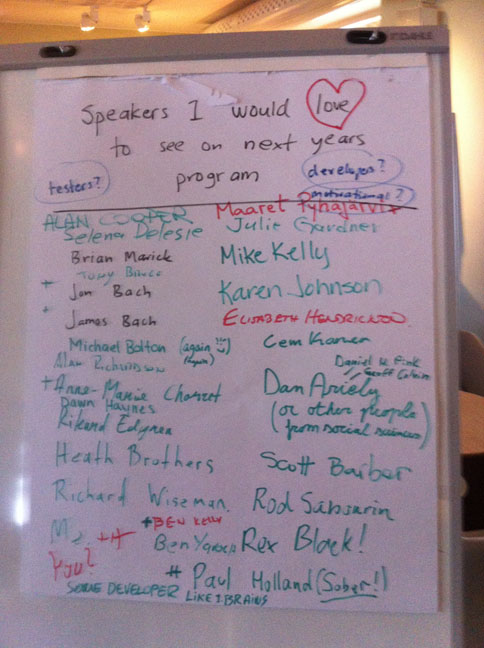 Speakers I would love
to see on next years
program
testers?
developers?
motivational?
ALAN COOPER
Selena Delesie
Brian Marick
Tony Bruce
+ Jon Bach
+ James Bach
Michael Bolton (again :))
Alan Richardson (Again)
+ Anne-Marie Charrett
Dawn Haynes
Rikard Edgren
Heath Brothers
Richard Wiseman.
Me
You?
SOME DEVELOPER LIKE
Maaret Pyhäjärvi
Julie Gardner
Mike Kelly
Karen Johnson
ELISABETH HENDRICKSON
Cem Kaner
Daniel H Pink
Geoff Colvin
Dan Ariely
(or other people
from social sciences)
Scott Barber
Rod
+ BEN KELLY
Ben
Rex Black!
# Paul Holland (Sober!)